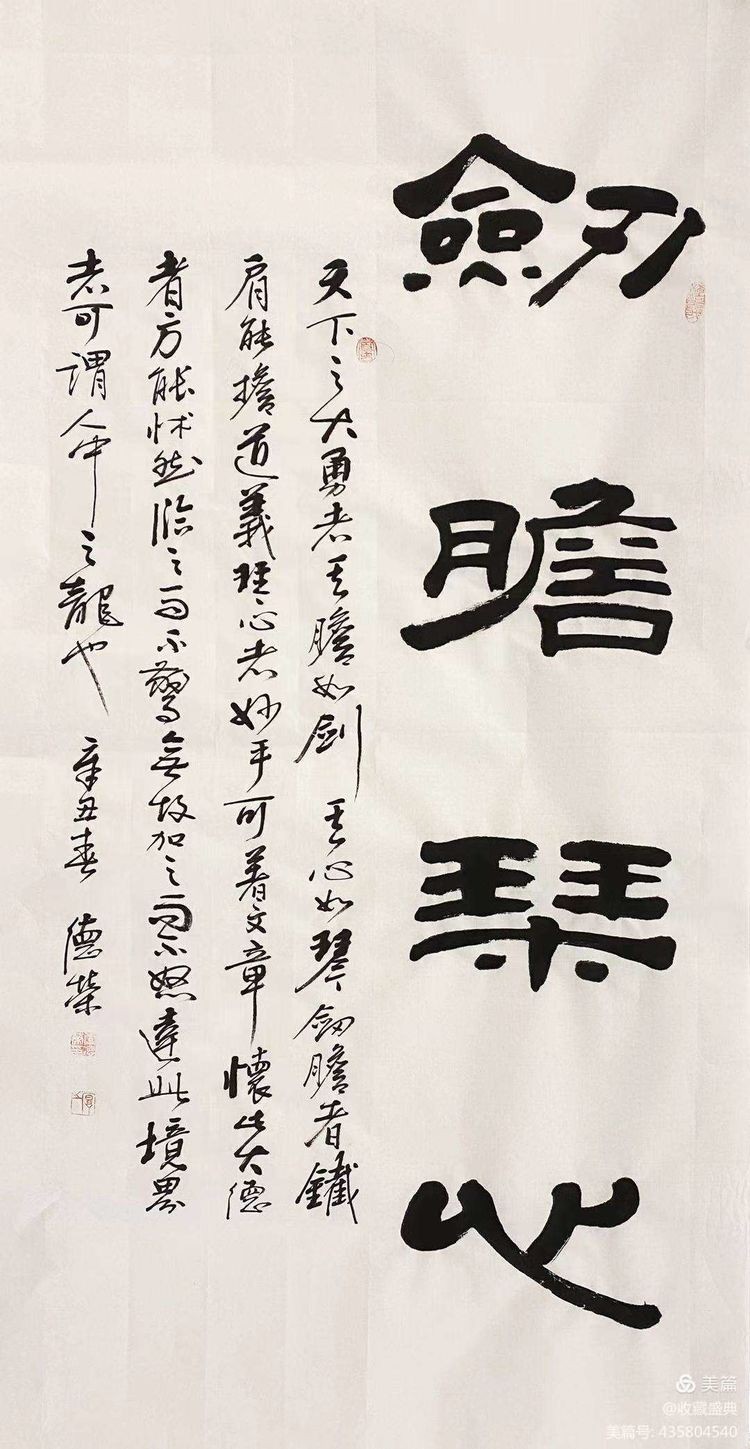 劒膽琴心
天下之大勇者其膽如劍其心如琴劒膽者鐵
肩能擔道義琴心者妙手可着文章懷此大德
者方能怵然臨之而不驚無故加之而不怒達此境界
者可謂人中之龍也 辛丑春 德榮
美篇
@收藏盛典
美篇号: 435804540